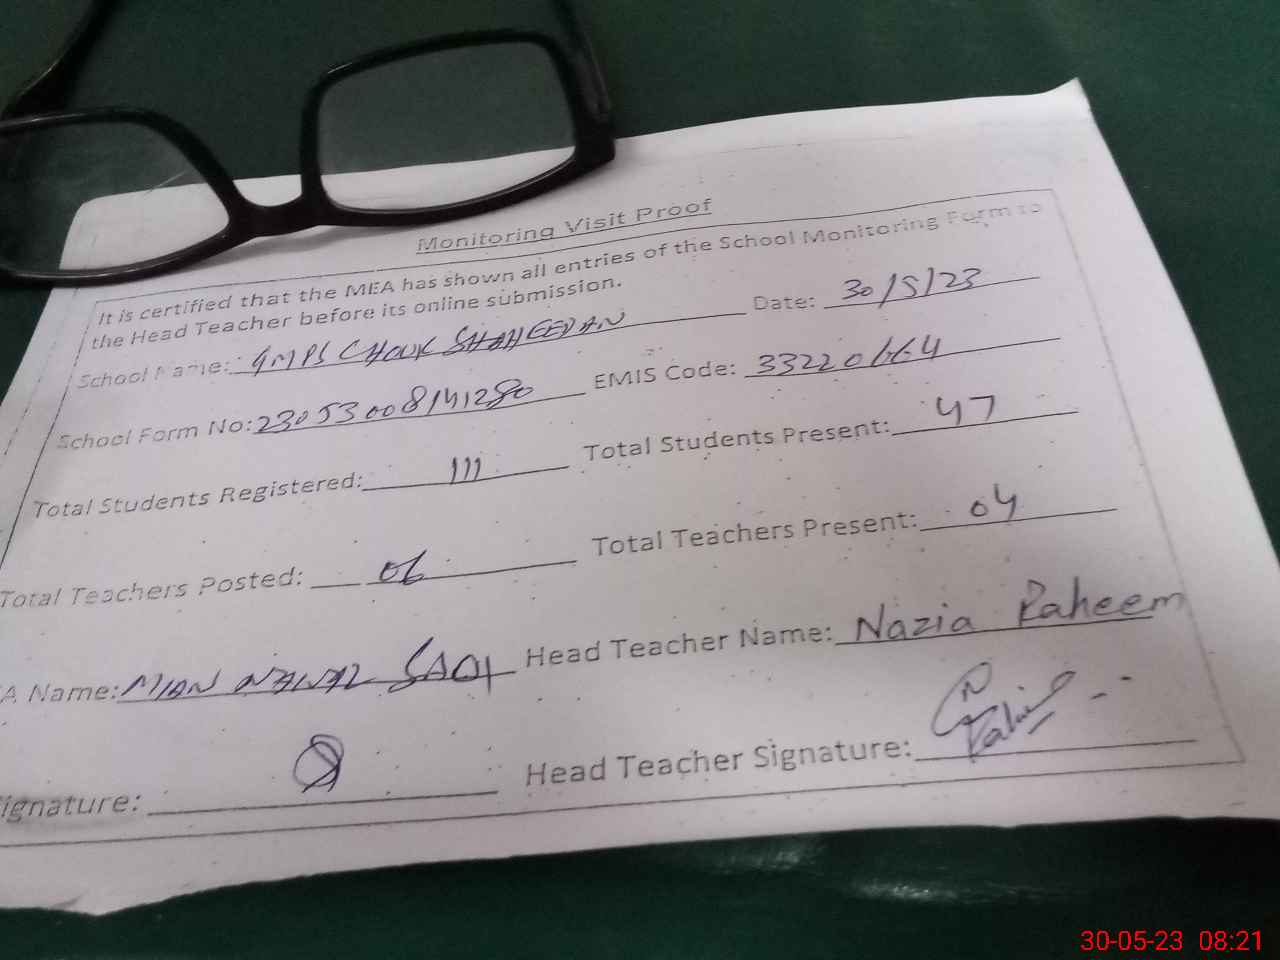 Monitoring Visit Proof
It is certified that the MEA has shown all entries of the School Monitoring Form to
the Head Teacher before its online submission.
School Name: GMPS CHOUK SHAHEEDAN Date: 30/5/23
School Form No: 23053008141280 EMIS Code: 33220664
Total Students Registered: 111 Total Students Present: 47
Total Teachers Posted: 06 Total Teachers Present: 04
A Name: MIAN NAWAZ Head Teacher Name: Nazia Raheem
ignature: Head Teacher Signature:
30-05-23 08:21